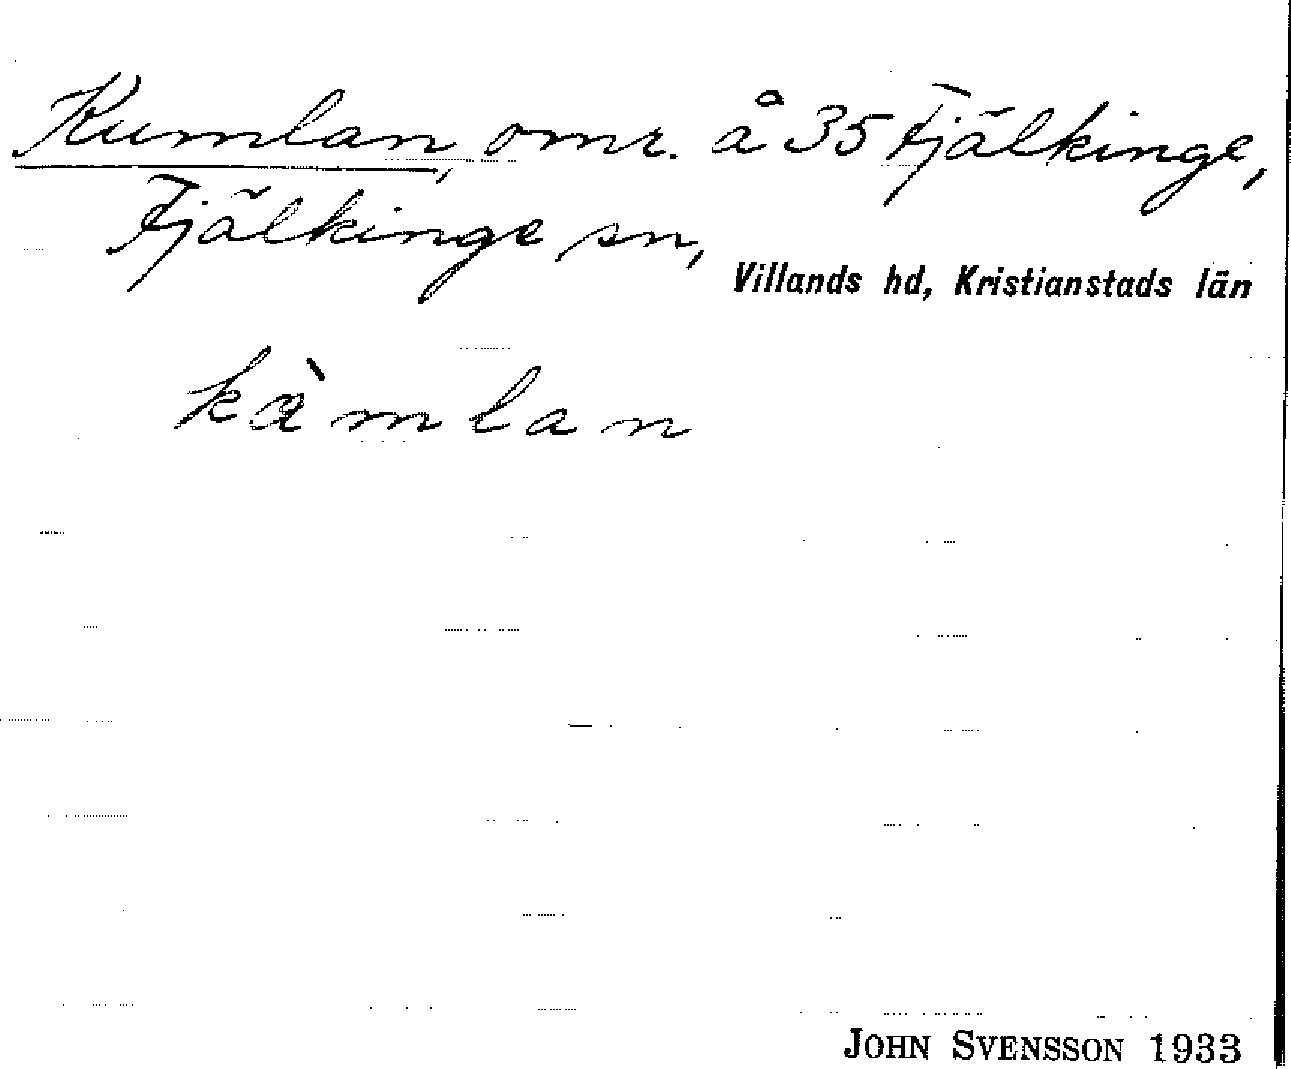 Kumlan, omr. å 35 Fjälkinge,
Fjälkinge sn,
Villands hd, Kristianstads län
kæ̀mlan
JOHN SVENSSON 1933